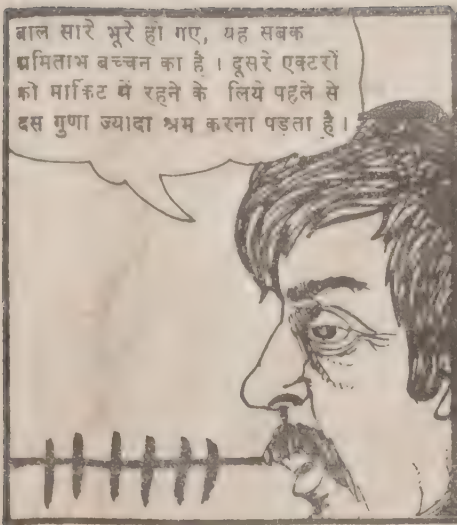 बाल सारे भूरे हो गए, यह सबक
अमिताभ बच्चन का है । दूसरे एक्टरों
को मार्किट में रहने के लिये पहले से
दस गुणा ज्यादा श्रम करना पड़ता है ।